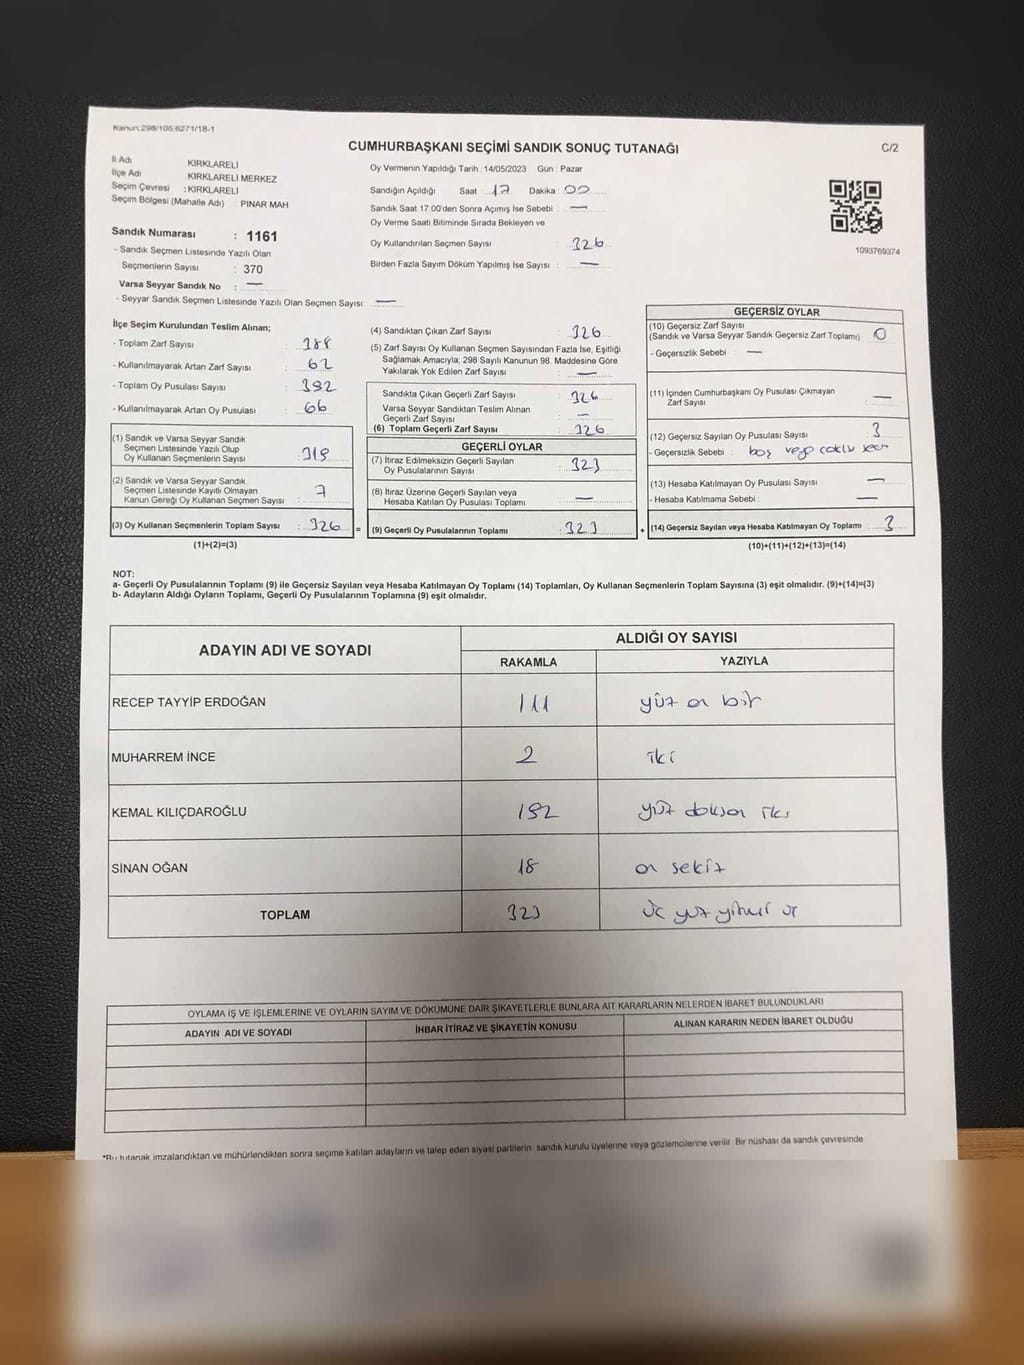 Kanun:298/105,6271/18-1
CUMHURBAŞKANI SEÇİMİ SANDIK SONUÇ TUTANAĞI
C/2
İl Adı KIRKLARELİ
İlçe Adı KIRKLARELİ MERKEZ
Seçim Çevresi : KIRKLARELİ
Seçim Bölgesi (Mahalle Adı) PINAR MAH
Sandık Numarası : 1161
- Sandık Seçmen Listesinde Yazılı Olan
Seçmenlerin Sayısı : 370
Varsa Seyyar Sandık No : —
- Seyyar Sandık Seçmen Listesinde Yazılı Olan Seçmen Sayısı: —
Oy Vermenin Yapıldığı Tarih : 14/05/2023 Gün : Pazar
Sandığın Açıldığı Saat : 17 Dakika : 00
Sandık Saat 17:00'den Sonra Açımış İse Sebebi : —
Oy Verme Saati Bitiminde Sırada Bekleyen ve
Oy Kullandırılan Seçmen Sayısı : 326
Birden Fazla Sayım Döküm Yapılmış İse Sayısı : —
1093769374
İlçe Seçim Kurulundan Teslim Alınan;
- Toplam Zarf Sayısı : 388
- Kullanılmayarak Artan Zarf Sayısı : 62
- Toplam Oy Pusulası Sayısı : 392
- Kullanılmayarak Artan Oy Pusulası : 66
(1) Sandık ve Varsa Seyyar Sandık
Seçmen Listesinde Yazılı Olup
Oy Kullanan Seçmenlerin Sayısı : 319
(2) Sandık ve Varsa Seyyar Sandık
Seçmen Listesinde Kayıtlı Olmayan
Kanun Gereği Oy Kullanan Seçmen Sayısı : 7
(3) Oy Kullanan Seçmenlerin Toplam Sayısı : 326 =
(1)+(2)=(3)
(4) Sandıktan Çıkan Zarf Sayısı : 326
(5) Zarf Sayısı Oy Kullanan Seçmen Sayısından Fazla İse, Eşitliği
Sağlamak Amacıyla; 298 Sayılı Kanunun 98. Maddesine Göre
Yakılarak Yok Edilen Zarf Sayısı : —
Sandıkta Çıkan Geçerli Zarf Sayısı : 326
Varsa Seyyar Sandıktan Teslim Alınan
Geçerli Zarf Sayısı : —
(6) Toplam Geçerli Zarf Sayısı : 326
GEÇERLİ OYLAR
(7) İtiraz Edilmeksizin Geçerli Sayılan
Oy Pusulalarının Sayısı : 323
(8) İtiraz Üzerine Geçerli Sayılan veya
Hesaba Katılan Oy Pusulası Toplamı : —
(9) Geçerli Oy Pusulalarının Toplamı : 323 +
GEÇERSİZ OYLAR
(10) Geçersiz Zarf Sayısı
(Sandık ve Varsa Seyyar Sandık Geçersiz Zarf Toplamı) : 0
- Geçersizlik Sebebi : —
(11) İçinden Cumhurbaşkanı Oy Pusulası Çıkmayan
Zarf Sayısı : —
(12) Geçersiz Sayılan Oy Pusulası Sayısı : 3
- Geçersizlik Sebebi : boş veya çoklu
(13) Hesaba Katılmayan Oy Pusulası Sayısı : —
- Hesaba Katılmama Sebebi : —
(14) Geçersiz Sayılan veya Hesaba Katılmayan Oy Toplamı : 3
(10)+(11)+(12)+(13)=(14)
NOT:
a- Geçerli Oy Pusulalarının Toplamı (9) ile Geçersiz Sayılan veya Hesaba Katılmayan Oy Toplamı (14) Toplamları, Oy Kullanan Seçmenlerin Toplam Sayısına (3) eşit olmalıdır. (9)+(14)=(3)
b- Adayların Aldığı Oyların Toplamı, Geçerli Oy Pusulalarının Toplamına (9) eşit olmalıdır.
ADAYIN ADI VE SOYADI
ALDIĞI OY SAYISI
RAKAMLA YAZIYLA
RECEP TAYYİP ERDOĞAN 111 yüz on bir
MUHARREM İNCE 2 iki
KEMAL KILIÇDAROĞLU 192 yüz doksan iki
SİNAN OĞAN 18 on sekiz
TOPLAM 323 üç yüz yirmi üç
OYLAMA İŞ VE İŞLEMLERİNE VE OYLARIN SAYIM VE DÖKÜMÜNE DAİR ŞİKAYETLERLE BUNLARA AİT KARARLARIN NELERDEN İBARET BULUNDUKLARI
ADAYIN ADI VE SOYADI İHBAR İTİRAZ VE ŞİKAYETİN KONUSU ALINAN KARARIN NEDEN İBARET OLDUĞU
*Bu tutanak imzalandıktan ve mühürlendikten sonra seçime katılan adayların ve talep eden siyasi partilerin sandık kurulu üyelerine veya gözlemcilerine verilir. Bir nüshası da sandık çevresinde